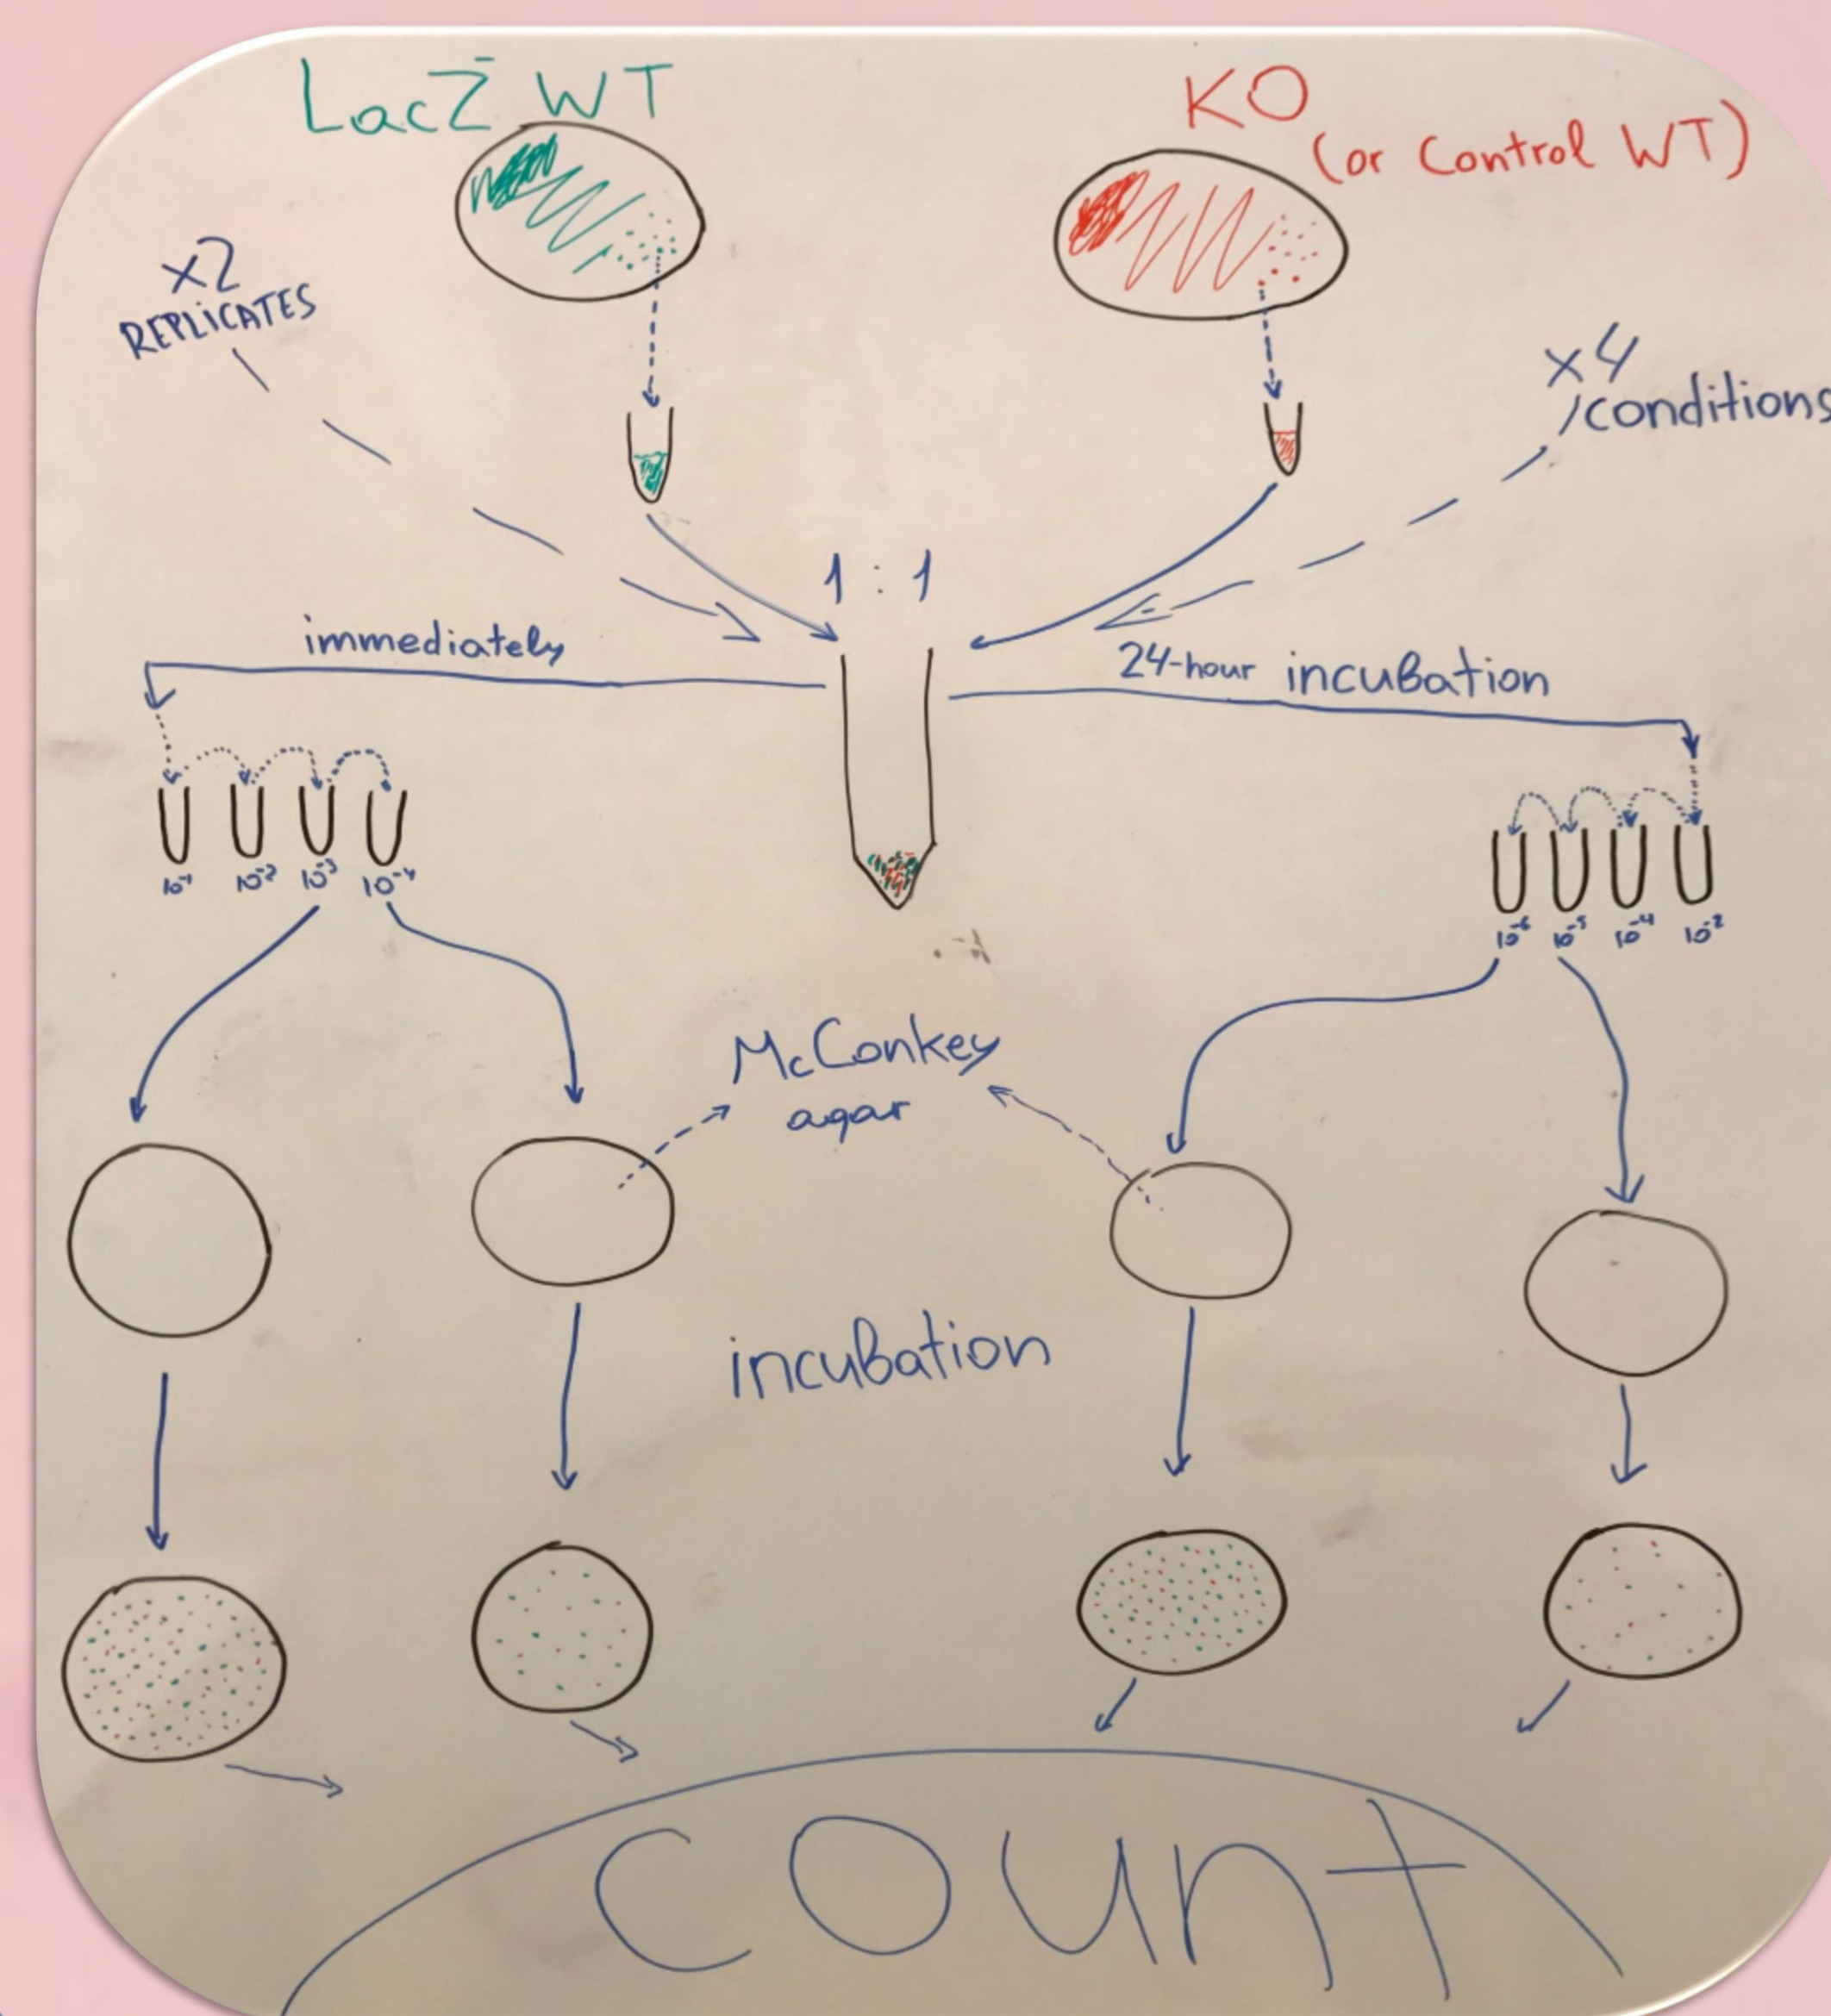 LacZ⁻ WT
KO
(or Control WT)
x2
REPLICATES
x4
conditions
1 : 1
immediately
24-hour incubation
10⁻¹ 10⁻² 10⁻³ 10⁻⁴
10⁻⁶ 10⁻⁵ 10⁻⁴ 10⁻²
McConkey
agar
incubation
count